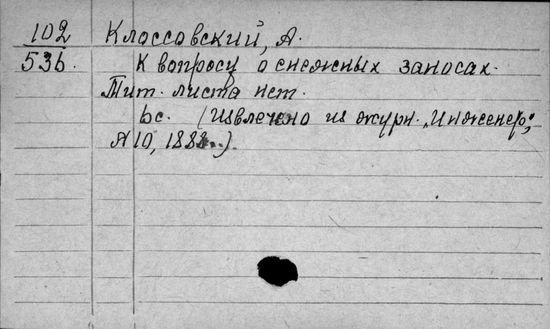 102 Клоссовский, А.
536. К вопросу о снежных заносах.
Тит. листа нет.
6с. (Извлечено из журн. „Инженер",
№10, 188 .).